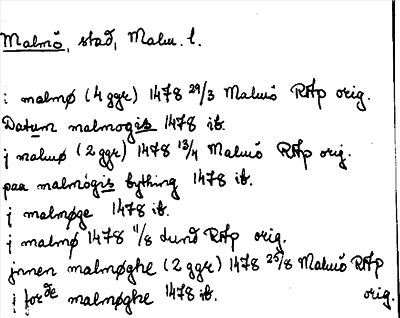 Malmö, stad, Malm. l.
i malmø (4 ggr) 1478 29/3 Malmö RAp orig.
Datum malmogis 1478 ib.
j malmø (2 ggr) 1478 13/4 Malmö RAp orig.
paa malmøgis bything 1478 ib.
j malmøge 1478 ib.
j malmø 1478 11/8 Lund RAp orig.
jnnen malmøghe (2 ggr) 1478 25/8 Malmö RAp orig.
j forde malmøghe 1478 ib.